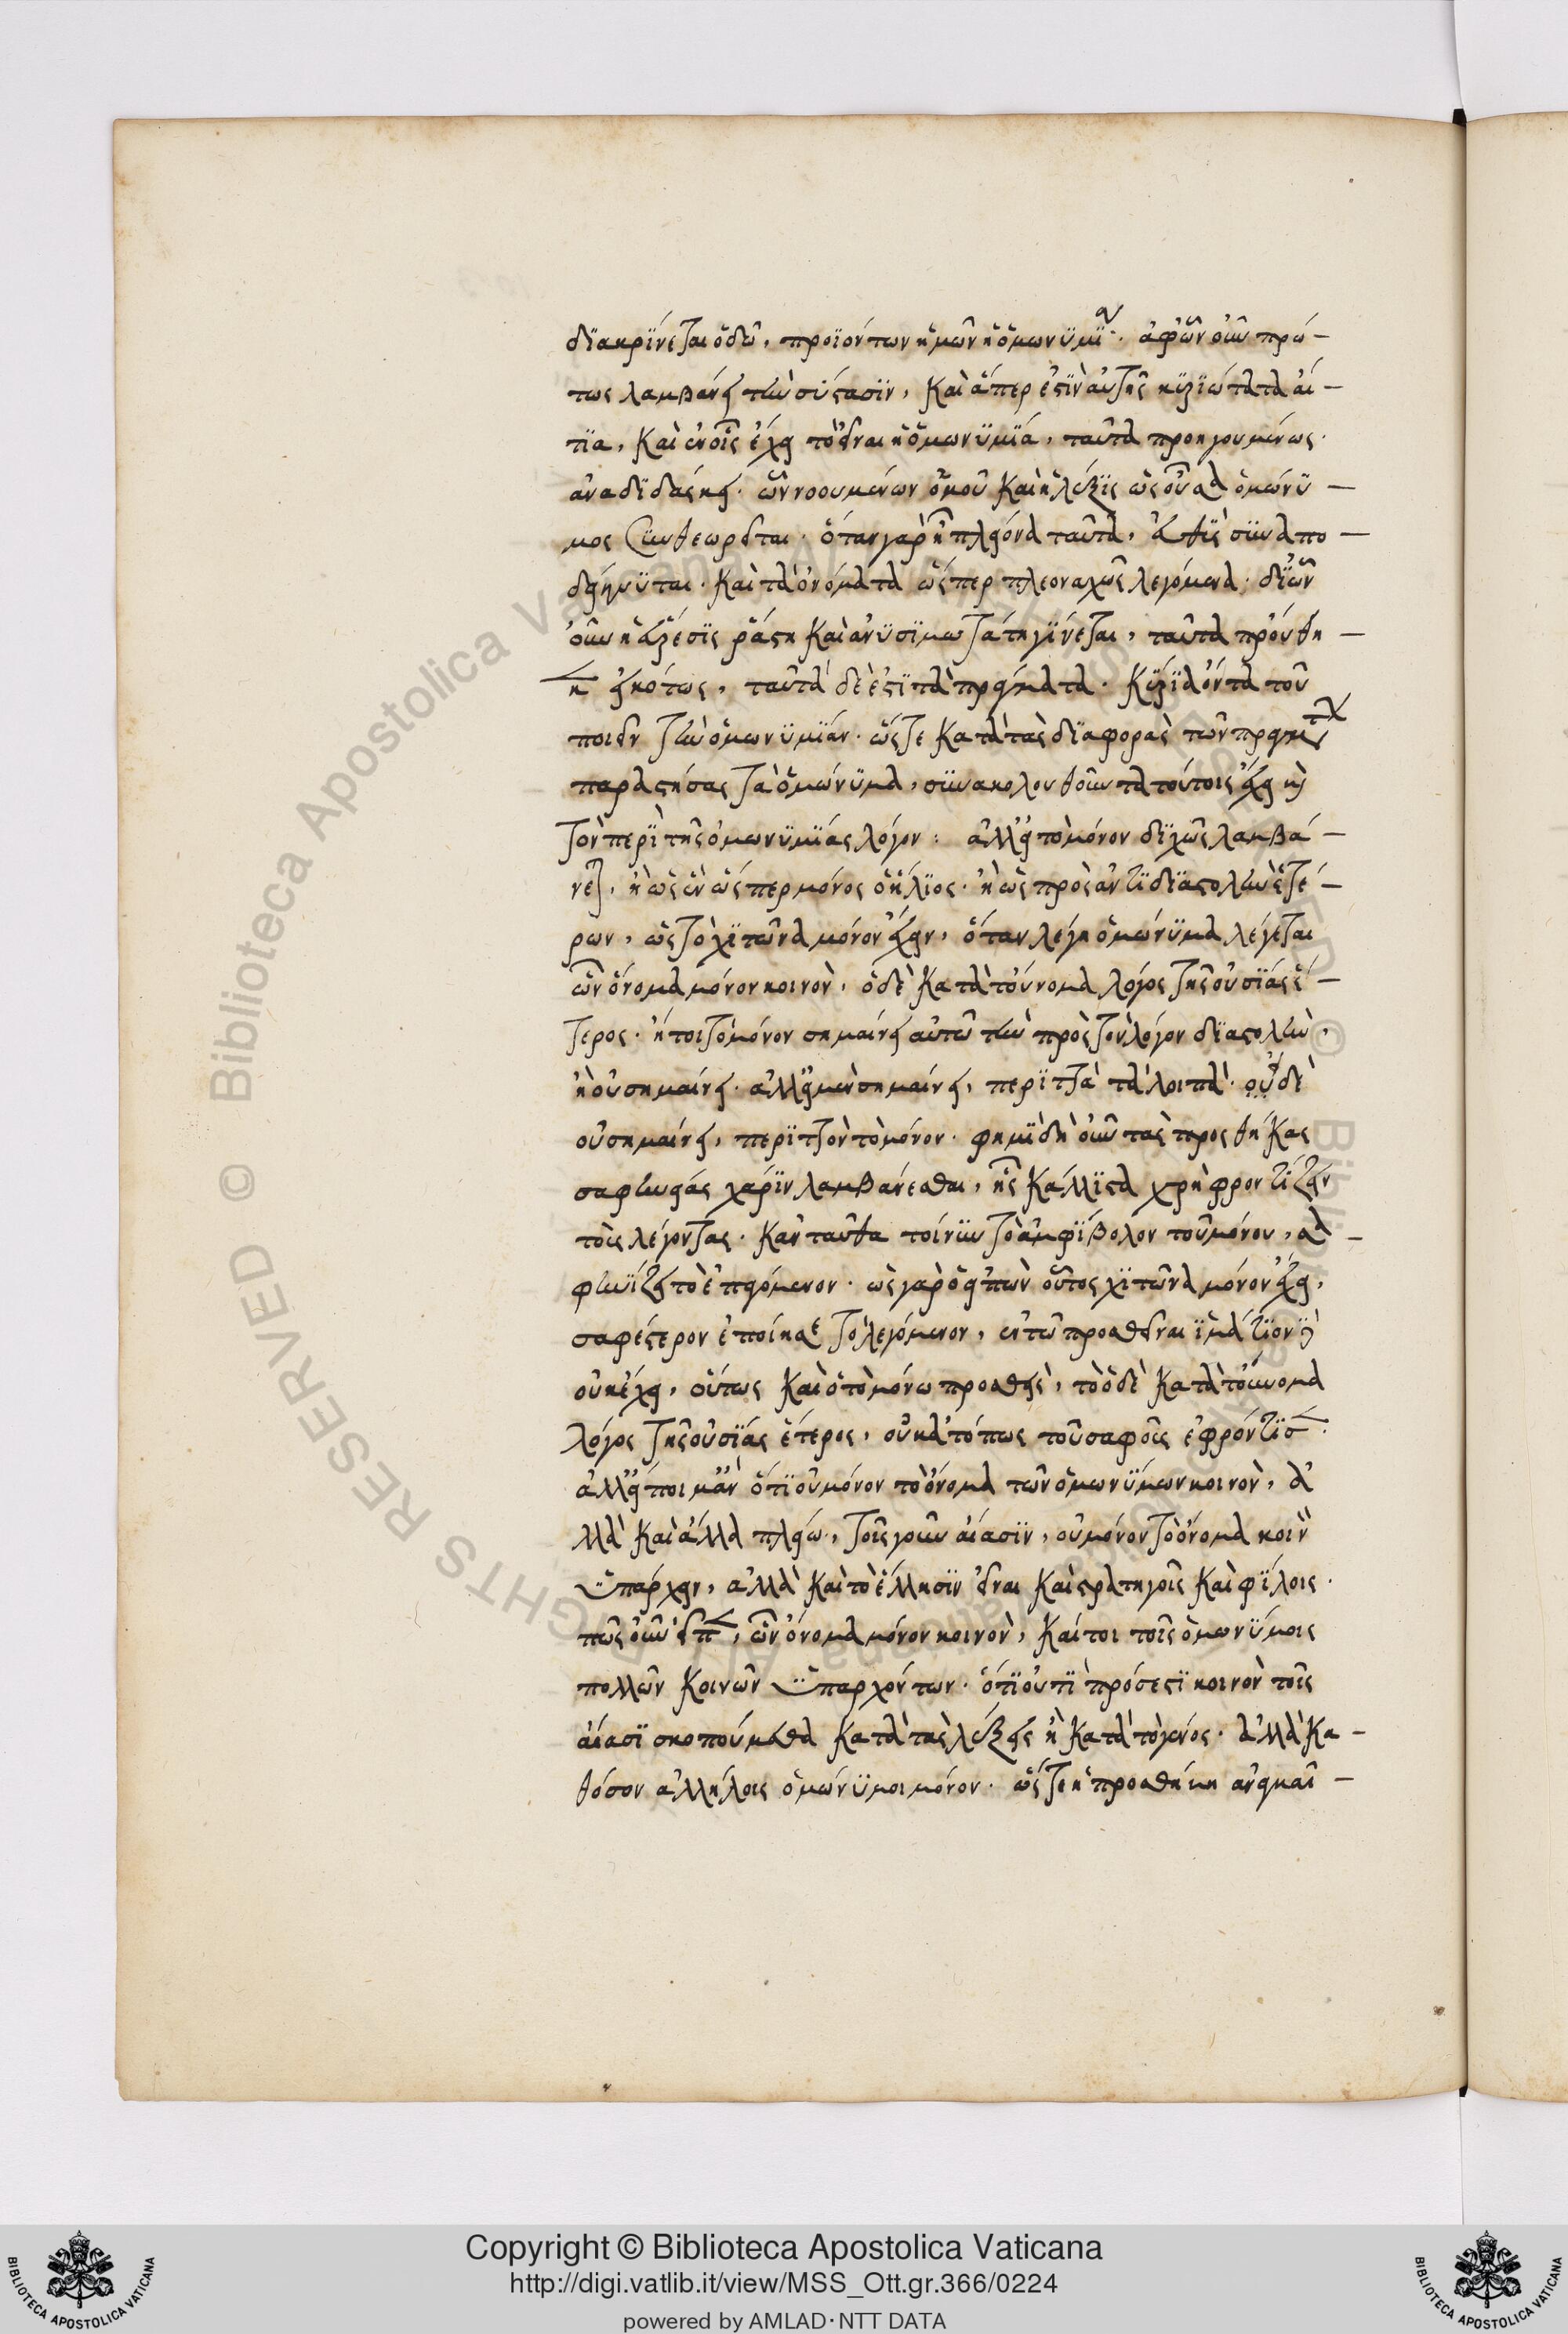 διακρίνεται ὁδῶ, προϊόντων ἡμῶν ἡ ὁμωνυμία. ἀφ' ὧν οὖν πρώ-
τως λαμβάνει τὴν σύστασιν, καὶ ἅπερ ἐστὶν αὐτῆς κυριώτατα αἴ-
τια, καὶ ἐν οἷς ἔχει τὸ εἶναι ἡ ὁμωνυμία, ταῦτα προηγουμένως
ἀναδιδάσκει. ὧν νοουμένων ὁμοῦ καὶ ἡ λέξις ὡς οὖσα ὁμώνυ-
μος συνθεωρεῖται. ὅταν γὰρ ἦ πλείονα ταῦτα, αὖθις συναπο-
δείκνυται. καὶ τὰ ὀνόματα ὥσπερ πλεοναχῶς λεγόμενα. δι' ὧν
οὖν ἡ εὕρεσις ῥάστη καὶ ἀνυσιμωτάτη γίνεται, ταῦτα προύθη-
κεν εἰκότως, ταῦτα δέ ἐστι τὰ πράγματα. κύρια ὄντα τοῦ
ποιεῖν τὴν ὁμωνυμίαν. ὥστε κατὰ τὰς διαφορὰς τῶν πραγμάτων
παραστήσας τὰ ὁμώνυμα, συνακολουθοῦντα τούτοις ἕξει καὶ
τὸν περὶ τῆς ὁμωνυμίας λόγον: ἀλλ' εἰ τὸ μόνον διχῶς λαμβά-
νεται, ἢ ὡς ἓν ὥσπερ μόνος ὁ ἥλιος. ἢ ὡς πρὸς ἀντιδιαστολὴν ἑτέ-
ρων, ὡς τὸ χιτῶνα μόνον ἔχειν, ὅταν λέγη ὁμώνυμα λέγεται
ὧν ὄνομα μόνον κοινὸν, ὁ δὲ κατὰ τοὔνομα λόγος τῆς οὐσίας ἕ-
τερος. ἤτοι τὸ μόνον σημαίνει αὐτῶ τὴν πρὸς τὸν λόγον διαστολὴν,
ἢ οὐ σημαίνει. ἀλλ' εἰ μὲν σημαίνει, περιττὰ τὰ λοιπὰ. εἰ δὲ
οὐ σημαίνει, περιττὸν τὸ μόνον. φημὶ δὴ οὖν τὰς προσθήκας
σαφηνείας χάριν λαμβάνεσθαι, ἧς κάλλιστα χρὴ φροντίζειν
τοὺς λέγοντας. κἀνταῦθα τοίνυν τὸ ἀμφίβολον τοῦ μόνον, σα-
φηνίζει τὸ ἐπαγόμενον. ὡς γὰρ ὁ εἰπὼν οὗτος χιτῶνα μόνον ἔχει,
σαφέστερον ἐποίησε τὸ λεγόμενον, ἐν τῶ προσθεῖναι ἱμάτιον δὲ
οὐκ ἔχει, οὕτως καὶ ὁ τὸ μόνω προσθεὶς, τὸ ὁ δὲ κατὰ τοὔνομα
λόγος τῆς οὐσίας ἕτερος, οὐκ ἀτόπως τοῦ σαφοῦς ἐφρόντισεν.
ἀλλ' εἴποιμ' ἂν ὅτι οὐ μόνον τὸ ὄνομα τῶν ὁμωνύμων κοινὸν, ἀ-
λλὰ καὶ ἄλλα πλείω, τοῖς γοῦν αἴασιν, οὐ μόνον τὸ ὄνομα κοινὸν
ὑπάρχειν, ἀλλὰ καὶ τὸ ἕλλησιν εἶναι καὶ στρατηγοῖς καὶ φίλοις.
πῶς οὖν εἶπεν, ὧν ὄνομα μόνον κοινὸν, καίτοι τοῖς ὁμωνύμοις
πολλῶν κοινῶν ὑπαρχόντων. ὅτι οὔ τι πρόσεστι κοινὸν τοῖς
αἴασι σκοπούμεθα κατὰ τὰς λέξεις ἢ κατὰ τὸ γένος. ἀλλὰ κα-
θόσον ἀλλήλοις ὁμώνυμοι μόνον. ὥστε ἡ προσθήκη ἀναγκαῖ-
Copyright © Biblioteca Apostolica Vaticana
http://digi.vatlib.it/view/MSS_Ott.gr.366/0224
powered by AMLAD·NTT DATA